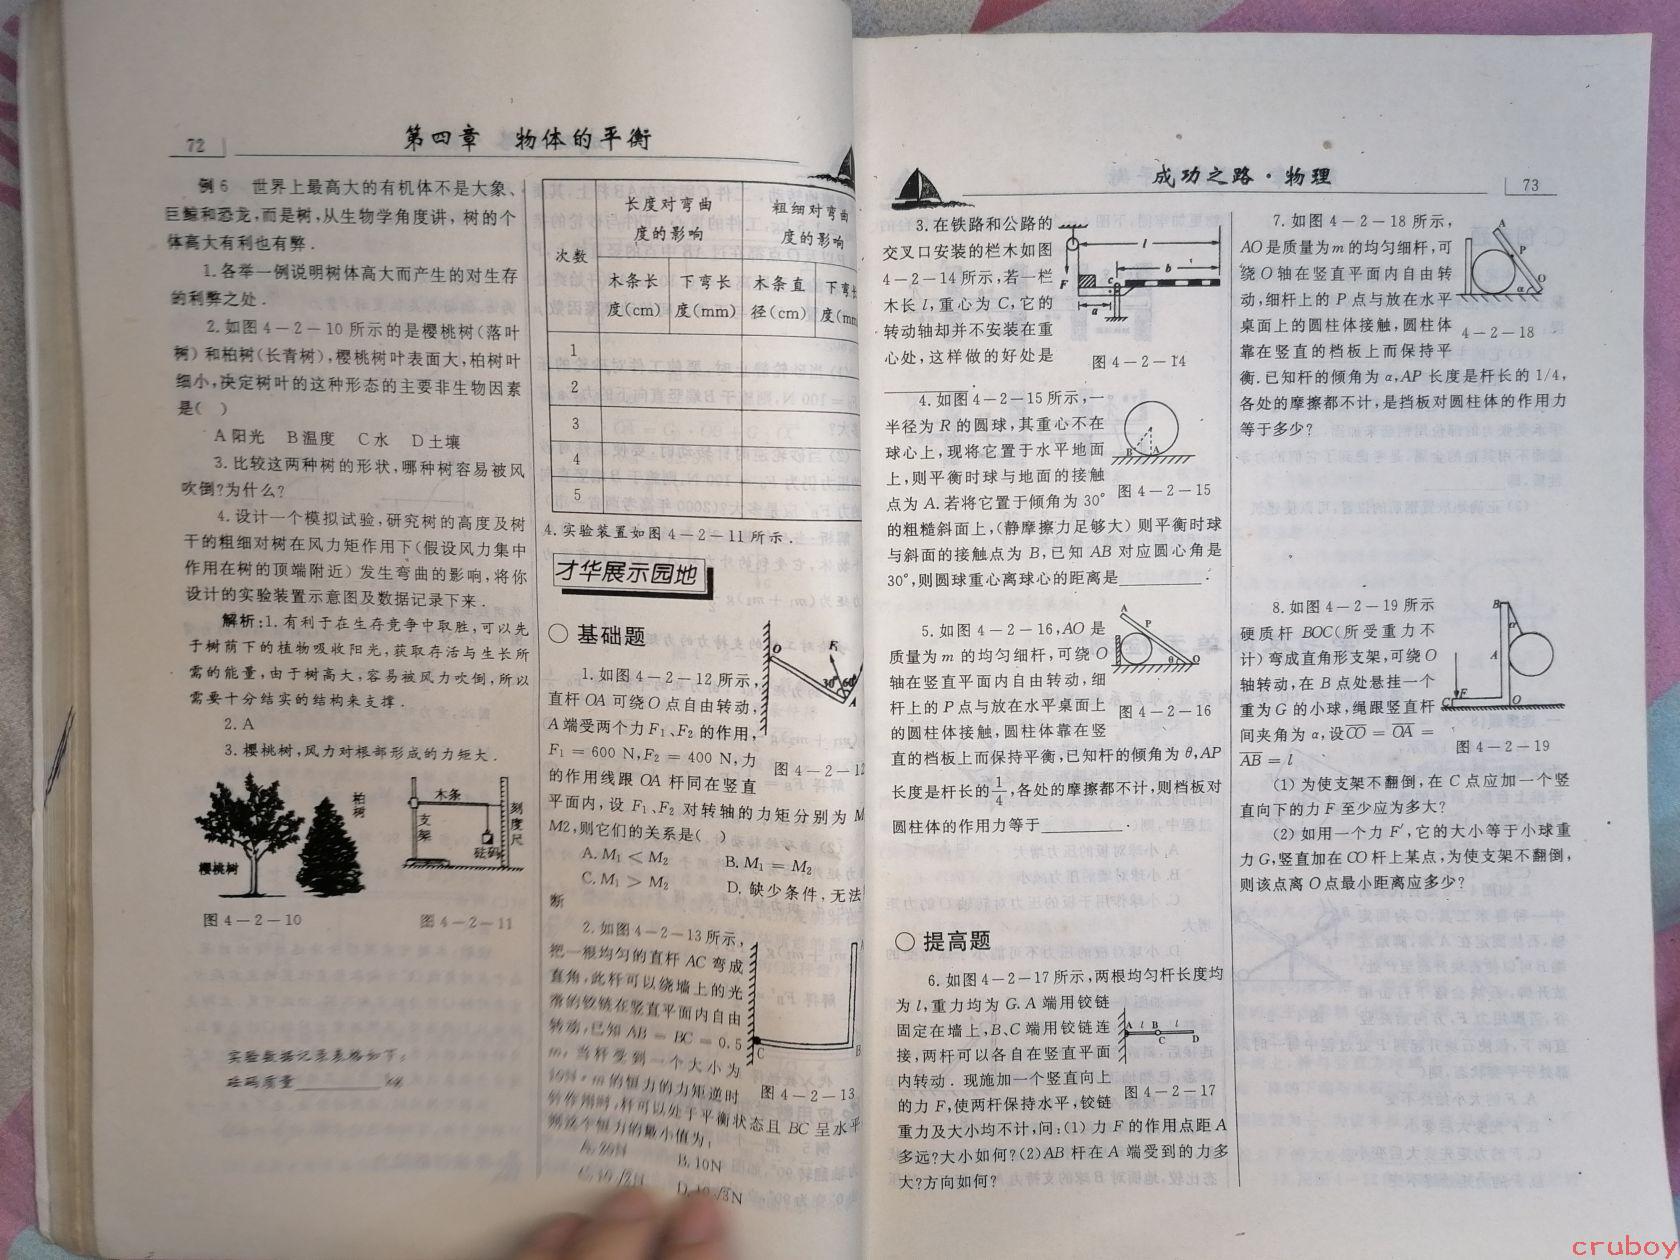 72
第四章 物体的平衡
例6 世界上最高大的有机体不是大象、
巨鲸和恐龙,而是树,从生物学角度讲,树的个
体高大有利也有弊.
1.各举一例说明树体高大而产生的对生存
的利弊之处.
2.如图4-2-10所示的是樱桃树(落叶
树)和柏树(长青树),樱桃树叶表面大,柏树叶
细小,决定树叶的这种形态的主要非生物因素
是( )
A阳光 B温度 C水 D土壤
3.比较这两种树的形状,哪种树容易被风
吹倒?为什么?
4.设计一个模拟试验,研究树的高度及树
干的粗细对树在风力矩作用下(假设风力集中
作用在树的顶端附近)发生弯曲的影响,将你
设计的实验装置示意图及数据记录下来.
解析:1.有利于在生存竞争中取胜,可以先
于树荫下的植物吸收阳光,获取存活与生长所
需的能量,由于树高大,容易被风力吹倒,所以
需要十分结实的结构来支撑.
2.A
3.樱桃树,风力对根部形成的力矩大.
樱桃树
柏树
木条
支架
砝码
刻度尺
图4-2-10
图4-2-11
实验数据记录表格如下:
砝码质量________kg
次数
长度对弯曲
度的影响
粗细对弯曲
度的影响
木条长
度(cm)
下弯长
度(mm)
木条直
径(cm)
下弯
度(mm
1
2
3
4
5
4.实验装置如图4-2-11所示.
才华展示园地
○ 基础题
1.如图4-2-12所示,
直杆OA可绕O点自由转动,
A端受两个力F₁、F₂的作用,
F₁=600 N,F₂=400 N,力
的作用线跟OA杆同在竖直
平面内,设F₁、F₂对转轴的力矩分别为M
M2,则它们的关系是( )
A. M₁<M₂ B. M₁=M₂
C. M₁>M₂ D. 缺少条件,无法
断
O
30°
60°
A
图4-2-12
2.如图4-2-13所示,
把一根均匀的直杆AC弯成
直角,此杆可以绕墙上的光
滑的铰链在竖直平面内自由
转动,已知AB=BC=0.5
m,当杆受到一个大小为
10N·m的恒力的力矩逆时
针作用时,杆可以处于平衡状态且BC呈水平
则这个恒力的最小值为:
A. 20N B. 10N
C
B
图4-2-13
成功之路·物理
73
3.在铁路和公路的
交叉口安装的栏木如图
4-2-14所示,若一栏
木长l,重心为C,它的
转动轴却并不安装在重
心处,这样做的好处是
________
l
b
F
C
a
图4-2-14
4.如图4-2-15所示,一
半径为R的圆球,其重心不在
球心上,现将它置于水平地面
上,则平衡时球与地面的接触
点为A.若将它置于倾角为30°
的粗糙斜面上,(静摩擦力足够大)则平衡时球
与斜面的接触点为B,已知AB对应圆心角是
30°,则圆球重心离球心的距离是________.
B A
图4-2-15
5.如图4-2-16,AO是
质量为m的均匀细杆,可绕O
轴在竖直平面内自由转动,细
杆上的P点与放在水平桌面上
的圆柱体接触,圆柱体靠在竖
直的档板上而保持平衡,已知杆的倾角为θ,AP
长度是杆长的1/4,各处的摩擦都不计,则档板对
圆柱体的作用力等于________.
A
P
θ O
图4-2-16
○ 提高题
6.如图4-2-17所示,两根均匀杆长度均
为l,重力均为G.A端用铰链
固定在墙上,B、C端用铰链连
接,两杆可以各自在竖直平面
内转动.现施加一个竖直向上
的力F,使两杆保持水平,铰链
重力及大小均不计,问:(1)力F的作用点距A
多远?大小如何?(2)AB杆在A端受到的力多
大?方向如何?
A l B l
C D
图4-2-17
7.如图4-2-18所示,
AO是质量为m的均匀细杆,可
绕O轴在竖直平面内自由转
动,细杆上的P点与放在水平
桌面上的圆柱体接触,圆柱体
靠在竖直的档板上而保持平
衡.已知杆的倾角为α,AP长度是杆长的1/4,
各处的摩擦都不计,是挡板对圆柱体的作用力
等于多少?
A
P
α O
4-2-18
8.如图4-2-19所示
硬质杆BOC(所受重力不
计)弯成直角形支架,可绕O
轴转动,在B点处悬挂一个
重为G的小球,绳跟竖直杆
间夹角为α,设CO=OA=
AB=l
(1)为使支架不翻倒,在C点应加一个竖
直向下的力F至少应为多大?
(2)如用一个力F′,它的大小等于小球重
力G,竖直加在CO杆上某点,为使支架不翻倒,
则该点离O点最小距离应多少?
B
α
A
C F O
图4-2-19
cruboy